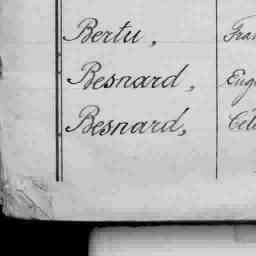 Bertu, Fran
Besnard, Eug
Besnard, Cél